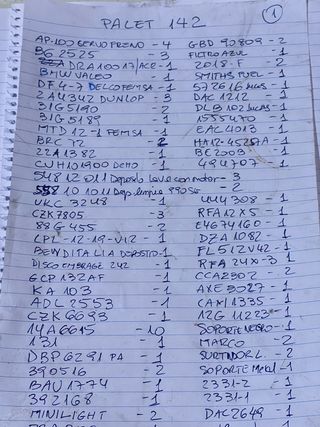 PALET 142
1
AP-100 SERVO FRENO - 4
BG 2525 - 3
DRA10017/ACR - 1
BMW VALEO - 1
DF4-7 DELCO FEMSA - 1
2A1342 DUNLOP - 3
31G5190 - 2
31G5189 - 1
MTD 12-1 FEMSA - 1
BRC 72 - 2
22A1382 - 1
CUH101900 - 1
548 12 011 Deposito lava con motor - 3
558 10 1011 - 2
UKC 3248 - 1
CZK7805 - 3
88G 455 - 2
LPL-12-19-V12 - 1
BEWDITALIA DEPOSITO - 1
DISCO EMBRAGE 242 - 1
GCP 132AF - 1
KA 103 - 1
ADL 2553 - 1
CZK 6693 - 1
14A6615 - 10
131 - 1
DBP6291 PA - 1
390516 - 2
BAU 1774 - 1
392168 - 1
MINILIGHT - 2
GBD 90809 - 2
FILTRO AZUL
2018-F - 2
SMITHS FUEL - 1
572616 - 1
DAC 1212 - 1
DLB 102 lucas - 1
1555470 - 1
EAC4013 - 1
BC2003 - 1
494707 - 1
UUU308 - 1
RFA 12 X 5 - 1
E4674160 - 1
DZA 1082 - 1
FL512V42 - 1
RFA 24X-3 - 1
CCA2302 - 2
AXE 3027 - 1
CAM1335 - 1
12G 11223 - 1
SOPORTE NEGRO - 1
MARCO - 2
SURTIDOR L. - 2
SOPORTE - 1
2331-2 - 1
2331-1 - 1
DAC2649 - 1